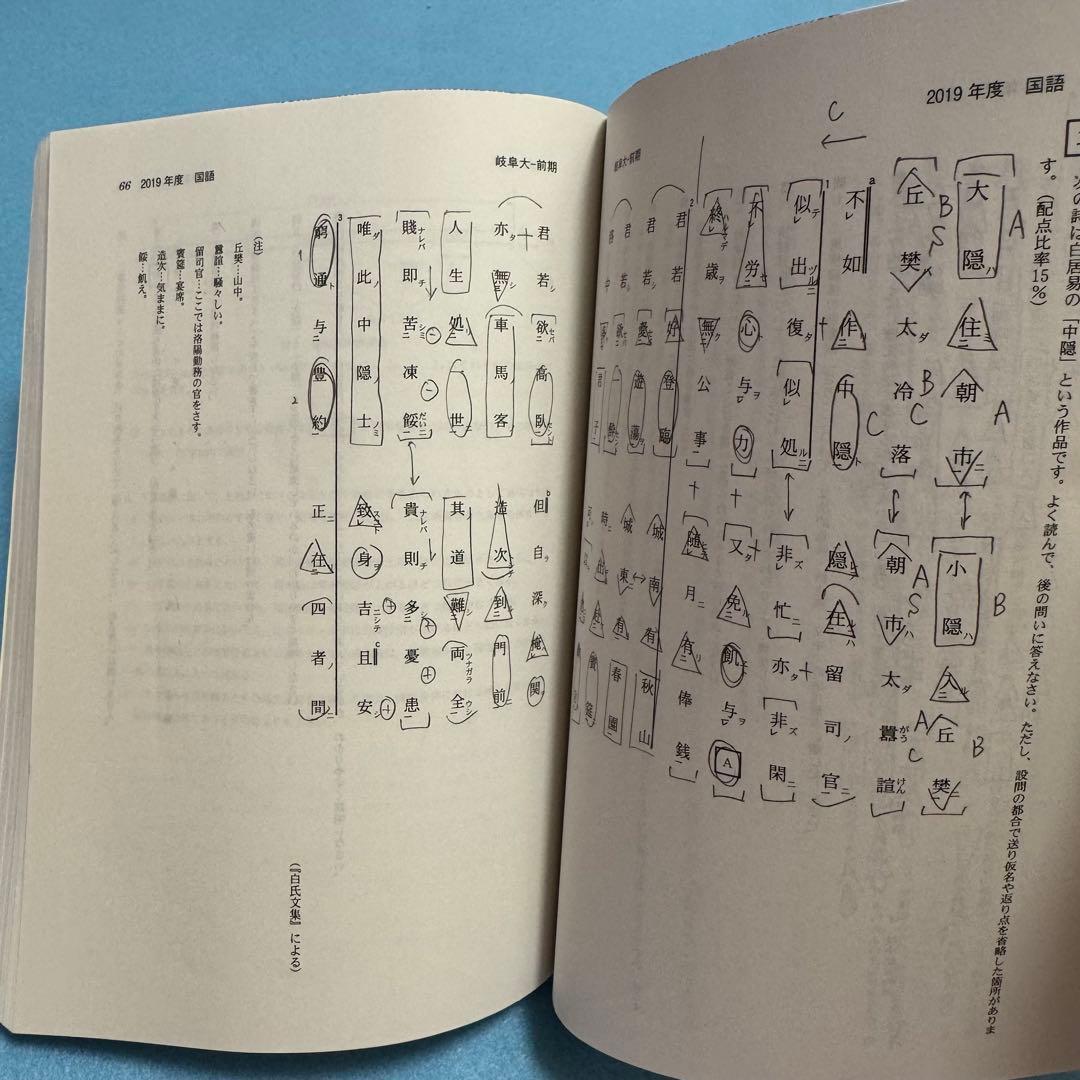 2019年度 国語
次の詩は白居易の「中隠」という作品です。よく読んで、後の問いに答えなさい。ただし、設問の都合で送り仮名や返り点を省略した箇所がありま
す。(配点比率15%)
大隠ハ住ミ朝市ニ 小隠ハ入ル丘樊ニ
丘樊ハ太ダ冷落 朝市ハ太ダ囂諠
不如作中隠 隠在留司官
似出復似処 非忙亦非閑
不労心与力 又免飢与A
終歳無公事 随月有俸銭
岐阜大-前期
君若好登臨 城南有秋山
君若愛遊蕩 城東有春園
66 2019年度 国語
岐阜大-前期
君若欲高臥 但自深掩関
亦無車馬客 造次到門前
人生処一世 其道難両全
賤即苦凍餒 貴則多憂患
唯此中隠士 致身吉且安
窮通与豊約 正在四者間
(『白氏文集』による)
(注)
丘樊…山中。
囂諠…騒々しい。
留司官…ここでは洛陽勤務の官をさす。
賓筵…宴席。
造次…気ままに。
餒…飢え。